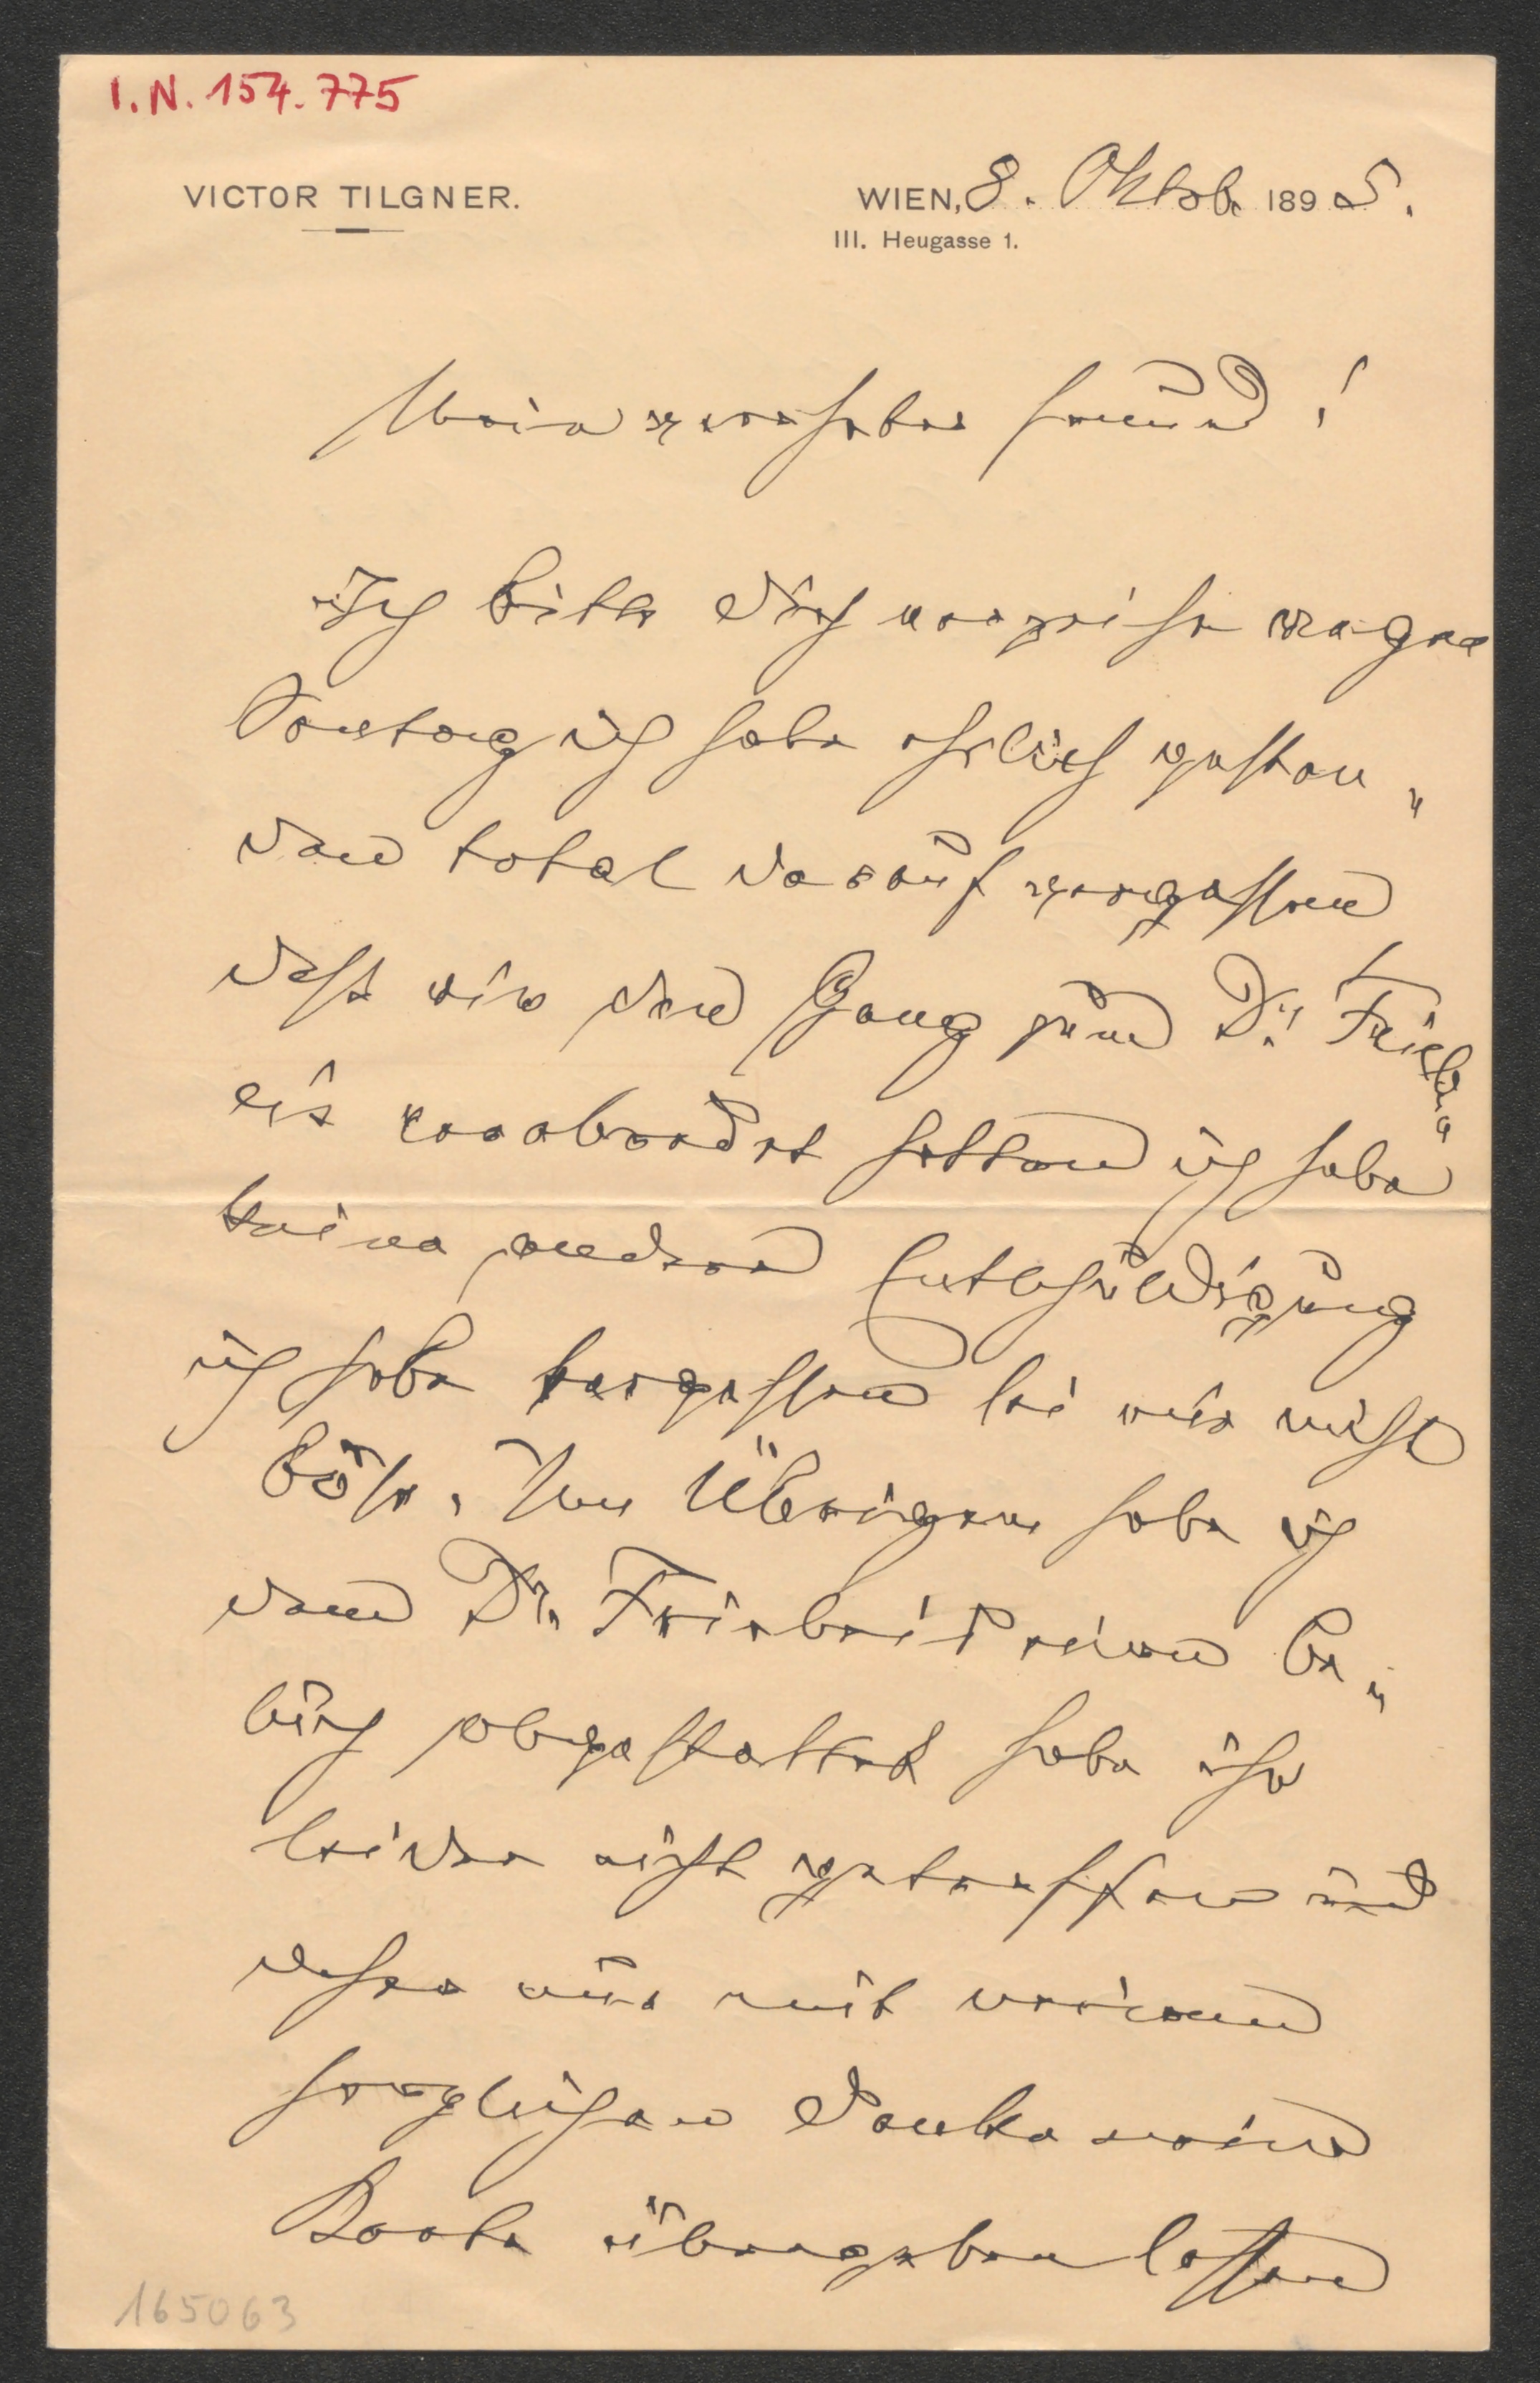 I.N. 154.775
VICTOR TILGNER.
WIEN, 8. Oktob. 1895.
III. Heugasse 1.
Mein verehrter Freund!
Ich bitte Dich verzeihe wegen
Sontag ich habe ehrlich gestan„
den total darauf vergessen
daß wir den Gang zum Dr. Frieb„
eis verabredet hatten ich habe
keine andere Entschuldigung
ich habe vergessen sei mir nicht
böse. Im Übrigen habe ich
dem Dr. Friebeis meinen Be„
such abgestattet habe ihn
leider nicht getroffen und
daher nur mit meinem
herzlichen Danke meine
Karte übergeben lassen
165063